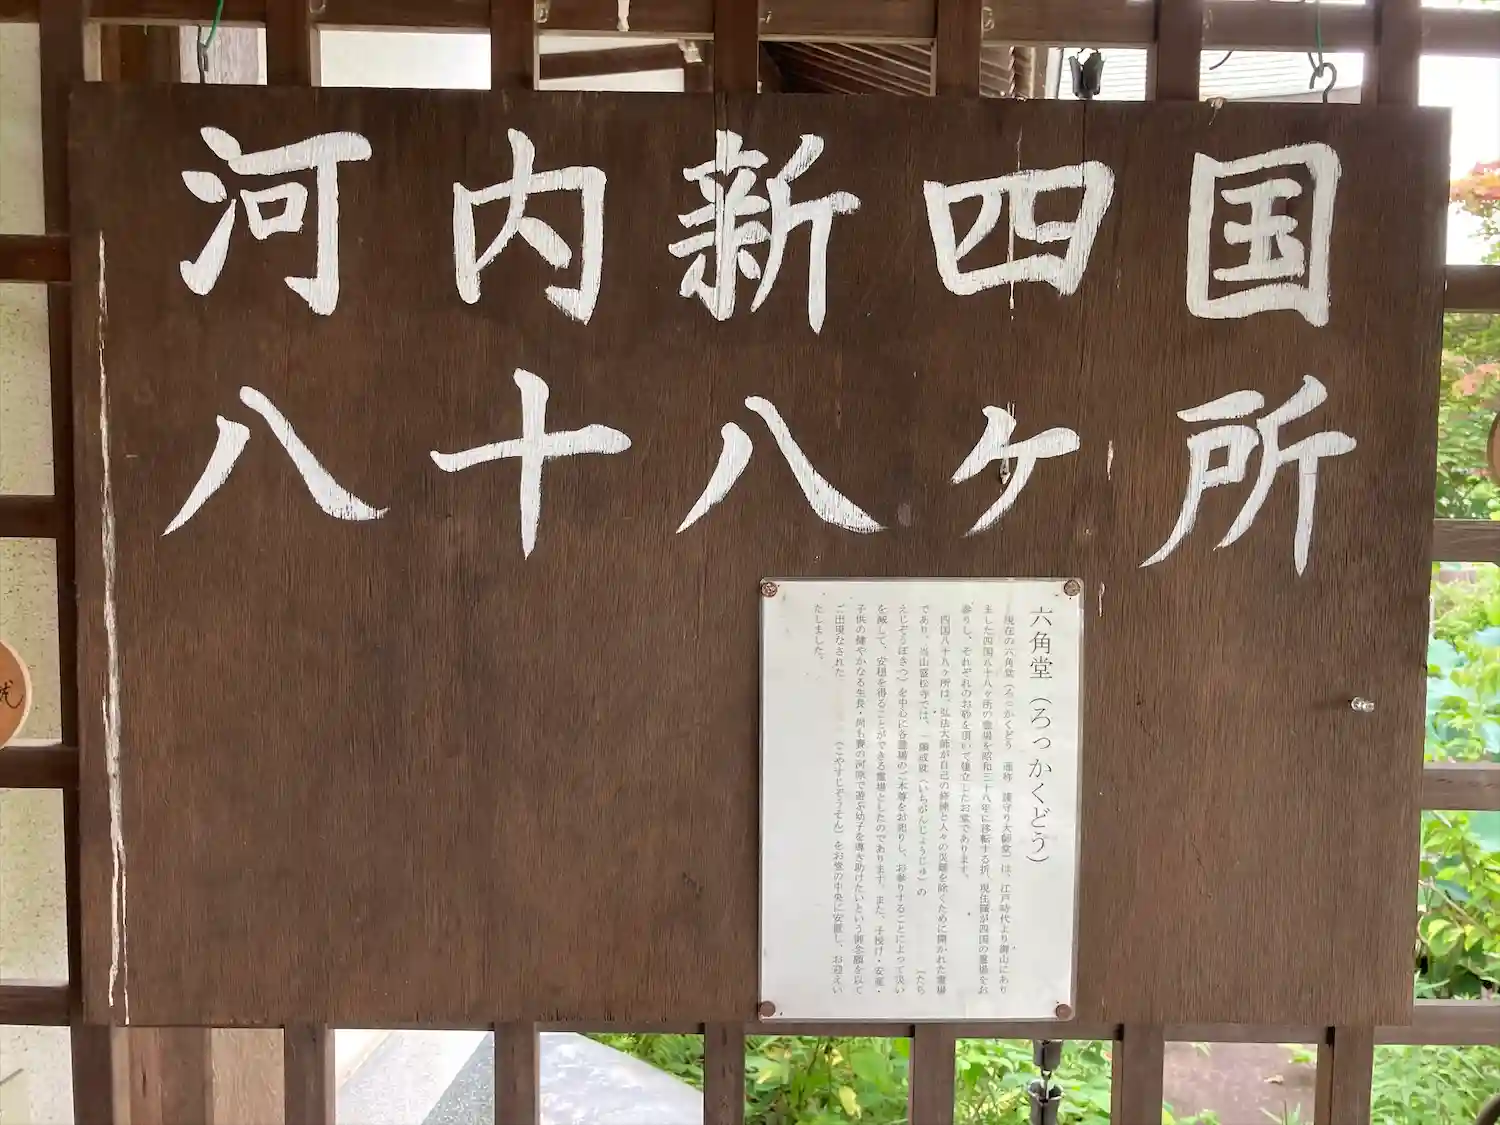 河内新四国
八十八ヶ所
六角堂（ろっかくどう）
現在の六角堂（ろっかくどう　通称　護守り大師堂）は、江戸時代より御山にあり
ました四国八十八ヶ所の霊場を昭和三十八年に移転する折、現住職が四国の霊場をお
参りし、それぞれのお砂を頂いて建立したお堂であります。
四国八十八ヶ所は、弘法大師が自己の修練と人々の災難を除くために開かれた霊場
であり、当山盛松寺では、一願成就（いちがんじょうじゅ）の　　　　（たち
えじぞうぼさつ）を中心に各霊場のご本尊をお祀りし、お参りすることによって災い
を滅して、安穏を得ることができる霊場としたのであります。また、子授け・安産・
子供の健やかなる生長・尚も賽の河原で遊ぶ幼子を導き助けたいという御念願を以て
ご出現なされた　　　　（こやすじぞうそん）をお堂の中央に安置し、お迎えい
たしました。